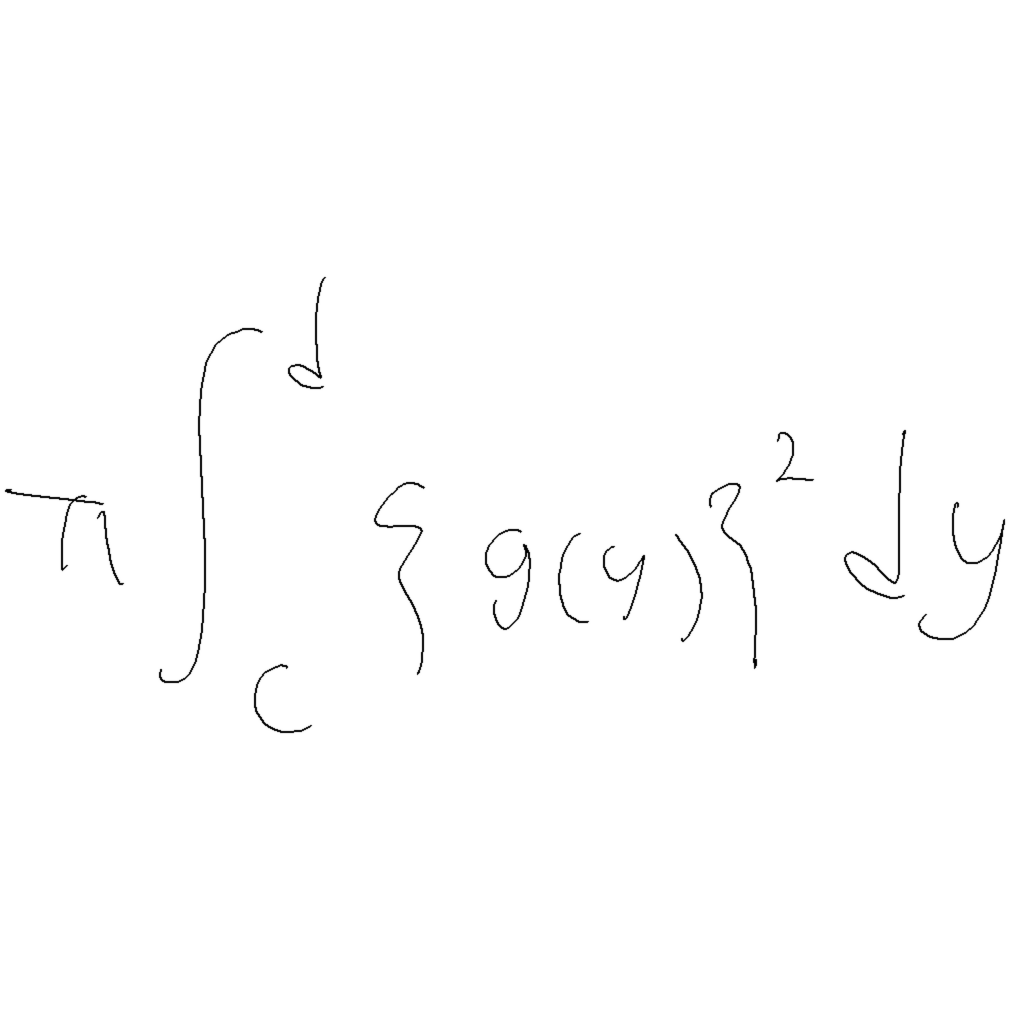 \pi \int_{c}^{d} \{ g(y) \}^2 dy